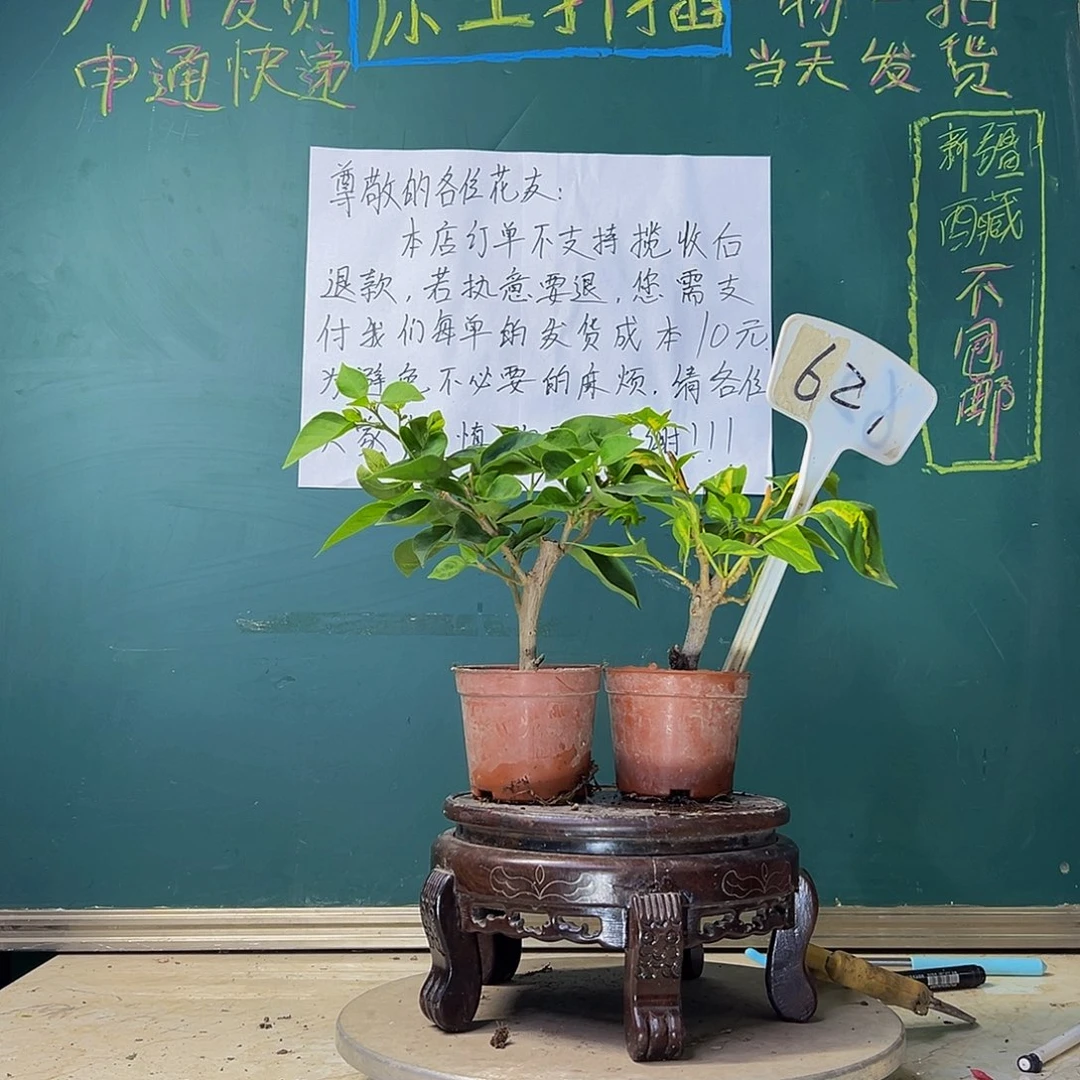 广州发货
原土扦插
一物一拍
申通快递
当天发货
新疆
西藏
不
包
邮
尊敬的各位花友:
本店订单不支持揽收后
退款,若执意要退,您需支
付我们每单的发货成本10元.
为避免不必要的麻烦.请各位
慎 谢!!!
62